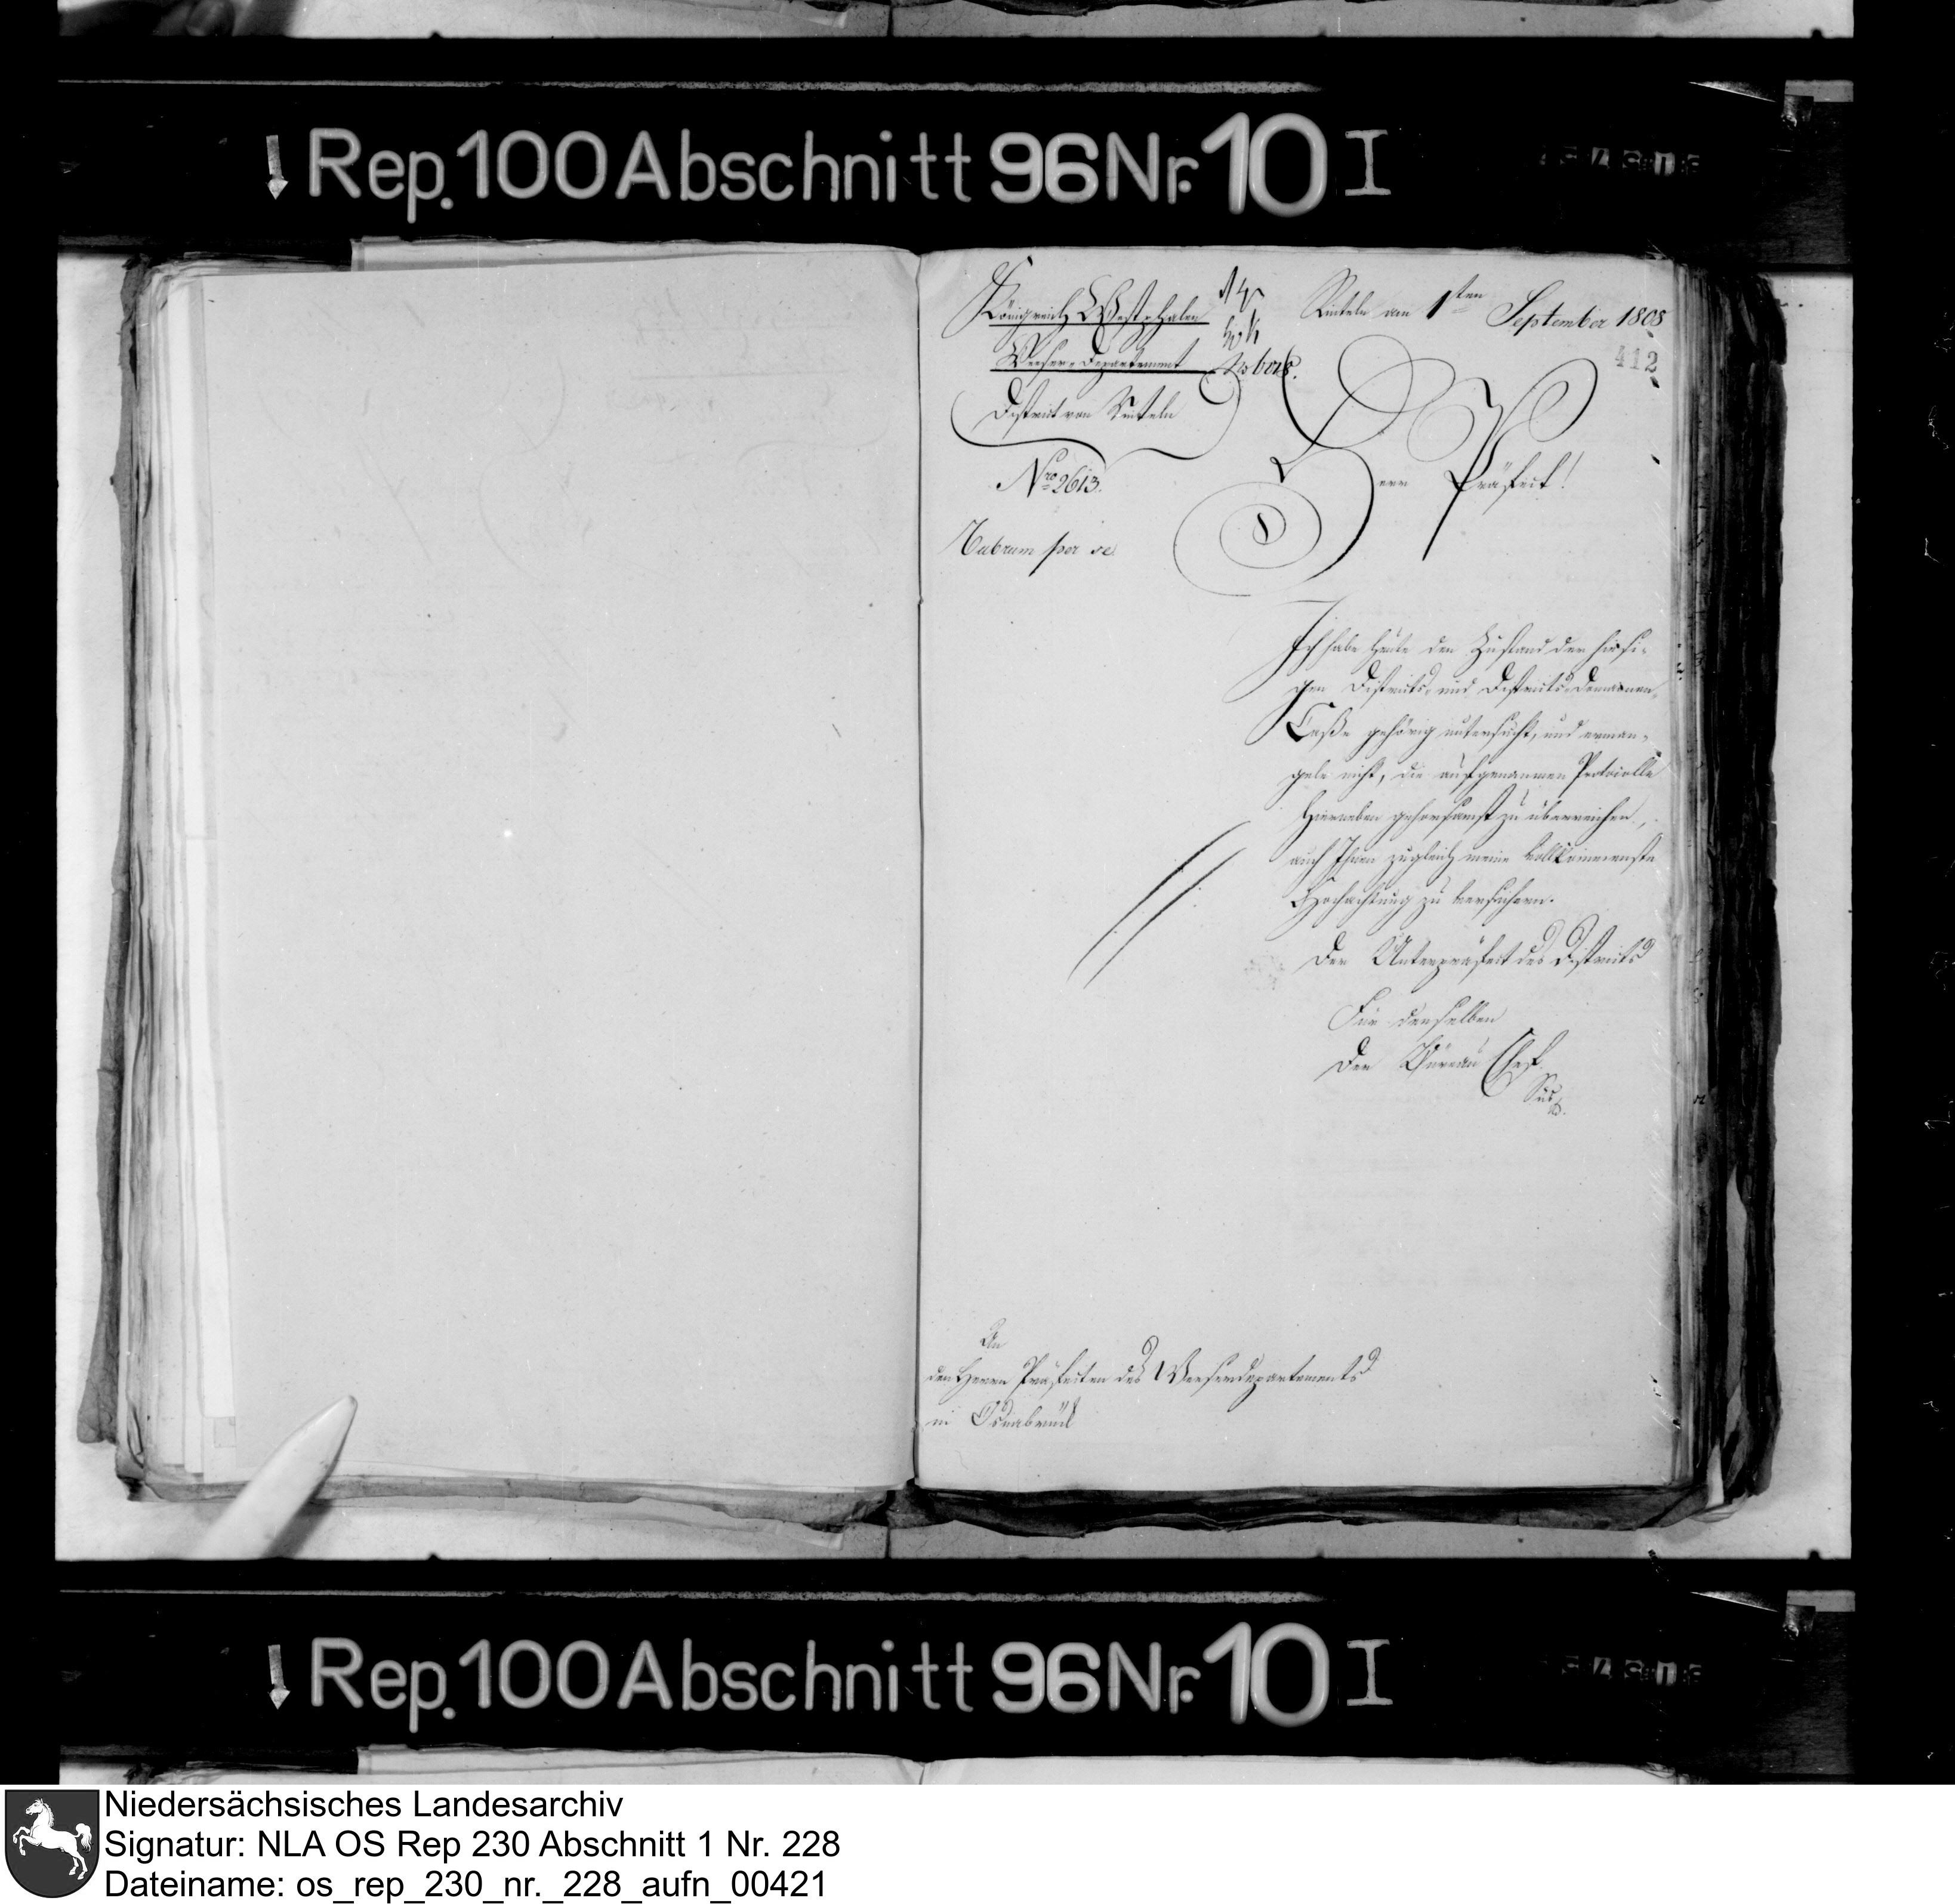 Rep. 100 Abschnitt 96 Nr. 10 I
Königreich Westphalen
Weser-Departement
District von Rinteln
Nro 2613.
Rubrum per se
Rinteln den 1sten September 1808
412
Herr Präfect!
Ich habe heute den Zustand der hiesi-
gen Districts- und Districts-Domainen-
Casse gehörig untersucht, und erman-
gele nicht, die aufgenommen Protocolle
hierneben gehorsamst zu überreichen,
auch Ihnen zugleich meine vollkommenste
Hochachtung zu versichern.
Der Unterpräfect des Districts
Für denselben
Der Büreau Chef
An
den Herrn Präfecten des Weserdepartements
in Osnabrück
Rep. 100 Abschnitt 96 Nr. 10 I
Niedersächsisches Landesarchiv
Signatur: NLA OS Rep 230 Abschnitt 1 Nr. 228
Dateiname: os_rep_230_nr._228_aufn_00421